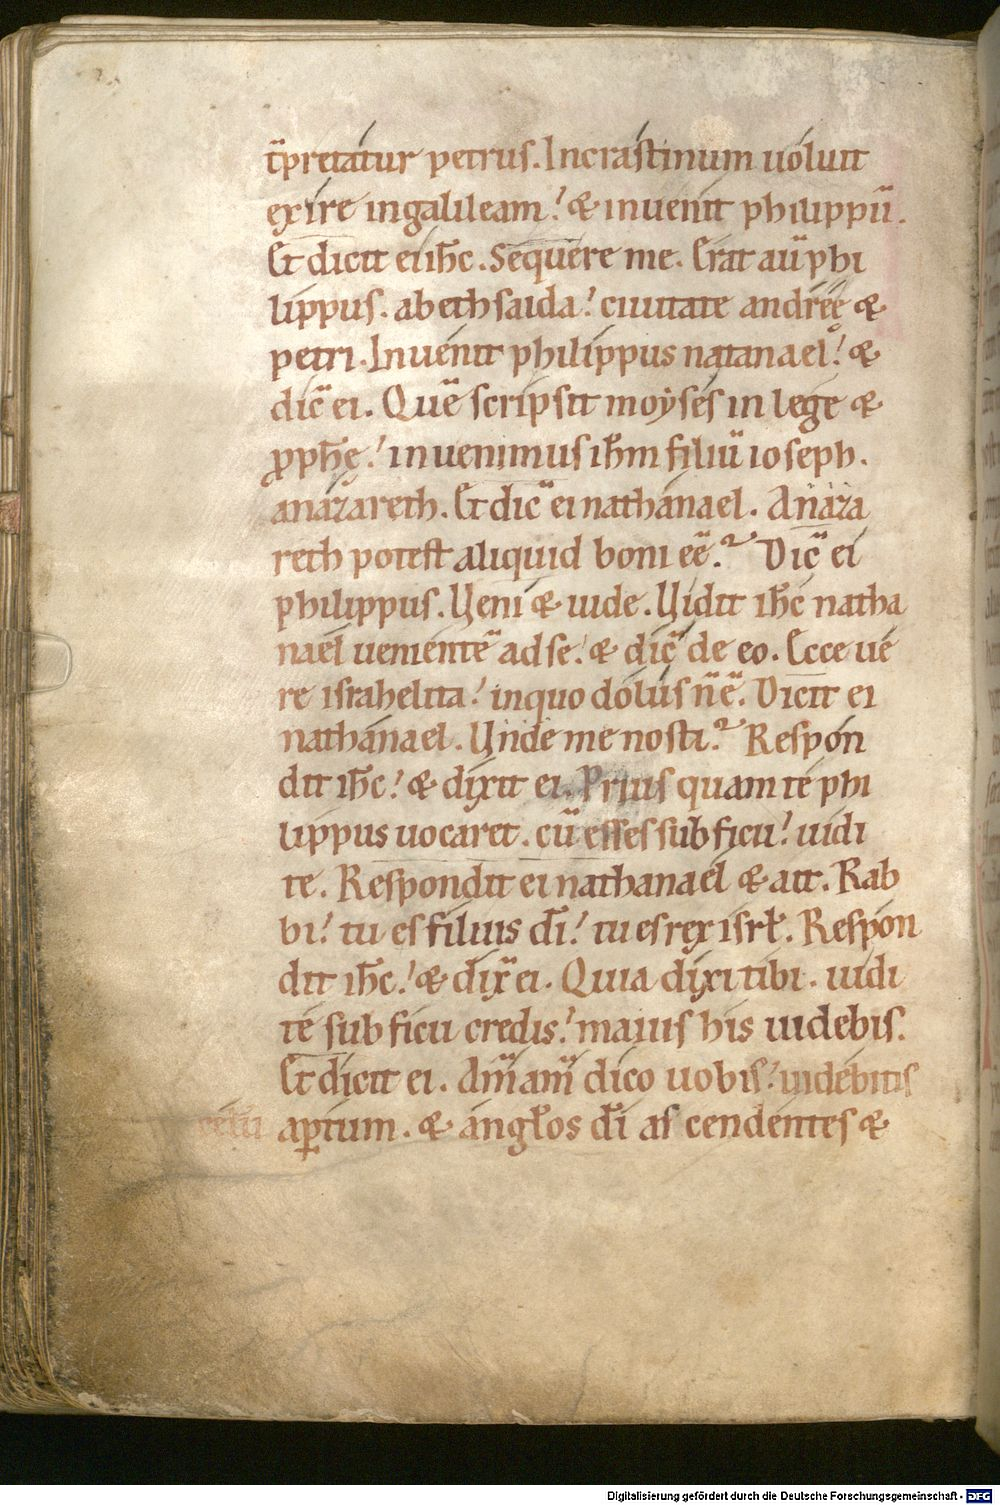 t̄pretatur petrus. Incrastinum uoluit
exire ingalileam! & inuenit philippū.
Et dicit ei ih̄c. Sequere me. Erat aū phi
lippus. abethsaida! ciuitate andreę &
petri. Inuenit philippus natanael! &
dic̄ ei. Quē scripsit moyses in lege &
ꝓph̄ę! inuenimus ih̄m filiū ioseph.
anazareth. Et dic̄ ei nathanael. Anaza
reth potest aliquid boni eē.? Dic̄ ei
philippus. Ueni & uide. Uidit ih̄c natha
nael uenientē ad se! & dic̄ de eo. Ecce ue
re israhelita! inquo dolus n̄ ē. Dicit ei
nathanael. Unde me nosti.? Respon
dit ih̄c! & dixit ei. Prius quam te phi
lippus uocaret. cū esses sub ficu! uidi
te. Respondit ei nathanael & ait. Rab
bi! tu es filius dī! tu es rex isrł. Respon
dit ih̄c! & dix̄ ei. Quia dixi tibi. uidi
te sub ficu credis! maius his uidebis.
Et dicit ei. Am̄ am̄ dico uobis! uidebitis
celū aꝑtum. & angłos dī as cendentes &
Digitalisierung gefördert durch die Deutsche Forschungsgemeinschaft - DFG